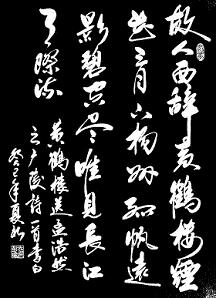 故人西辞黄鶴樓煙
花三月下揚州孤帆遠
影碧空尽唯見長江
天際流
黄鶴樓送孟浩然
之广陵詩一首書
癸巳年夏